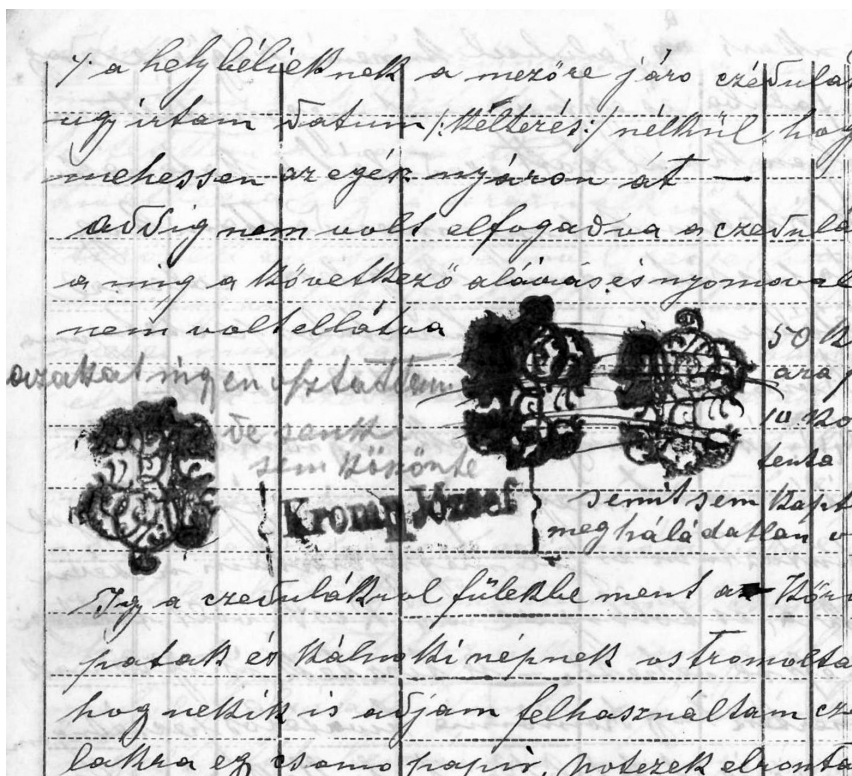 a helybélieknek a mezőre járo czédulák
ugy irtam datum /:Kelterés:/ nélkül hog
mehessen az egész nyáron át —
addig nem volt elfogadva a czedulá
a mig a következő aláirás és nyomoval
nem volt ellátva
50 K
azokat ingyen osztattam
ara
10 Ko
de senki
tenta
sem köszönte
Kromp József
semit sem kapt
meg háládatlan v
Igy a czedulákrol fülekbe ment az Körö
patak és Kálnoki népnek ostromolta
hog nekik is adjam felhasználtam cze
lakra eg csomo papir, notezek elronta